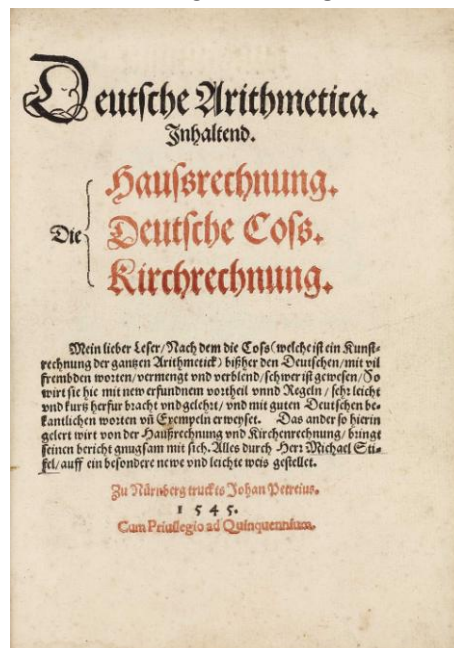 Deutsche Arithmetica.
Inhaltend.
Haussrechnung.
Die Deutsche Coss.
Kirchrechnung.
Mein lieber Leser/Nach dem die Coss (welche ist ein Kunst-
rechnung der gantzen Arithmetick) bißher den Deutschen/mit vil
frembden worten/vermengt vnd verblend/schwer ist gewesen/So
wirt sie hie mit new erfundnem vortheil vnnd Regeln/sehr leicht
vnd kurtz herfur bracht vnd gelehrt/vnd mit guten Deutschen be-
kantlichen worten vñ Exempeln erweyset. Das ander so hierin
gelert wirt von der Haußrechnung vnd Kirchenrechnung/bringt
seinen bericht gnugsam mit sich. Alles durch Herr Michael Sti-
fel/auff ein besondere newe vnd leichte weis gestellet.
Zu Nürnberg truckts Johan Petreius.
1 5 4 5.
Cum Priuilegio ad Quinquennium.